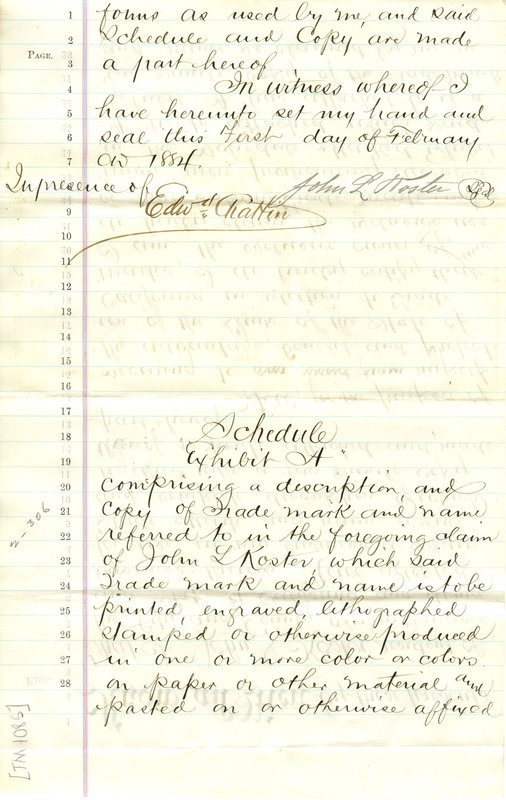 1 forms as used by me, and said
2 Schedule and Copy, are made
PAGE.
3 a part hereof
4 In witness whereof I
5 have hereunto set my hand and
6 seal this First day of February
7 AD 1884.
In presence of John L Koster Seal
Edwd Chattin
9
10
11
12
13
14
15
16
17
18 Schedule
19 Exhibit "A"
20 comprising a description, and
21 copy of Trade mark and name
22 referred to in the foregoing claim
23 of John L Koster, which said
24 Trade mark and name is to be
25 printed, engraved, lithographed
26 stamped or otherwise produced
27 in one or more color or colors
28 on paper or other material and
pasted on or otherwise affixed
2-306
[TM 1085]